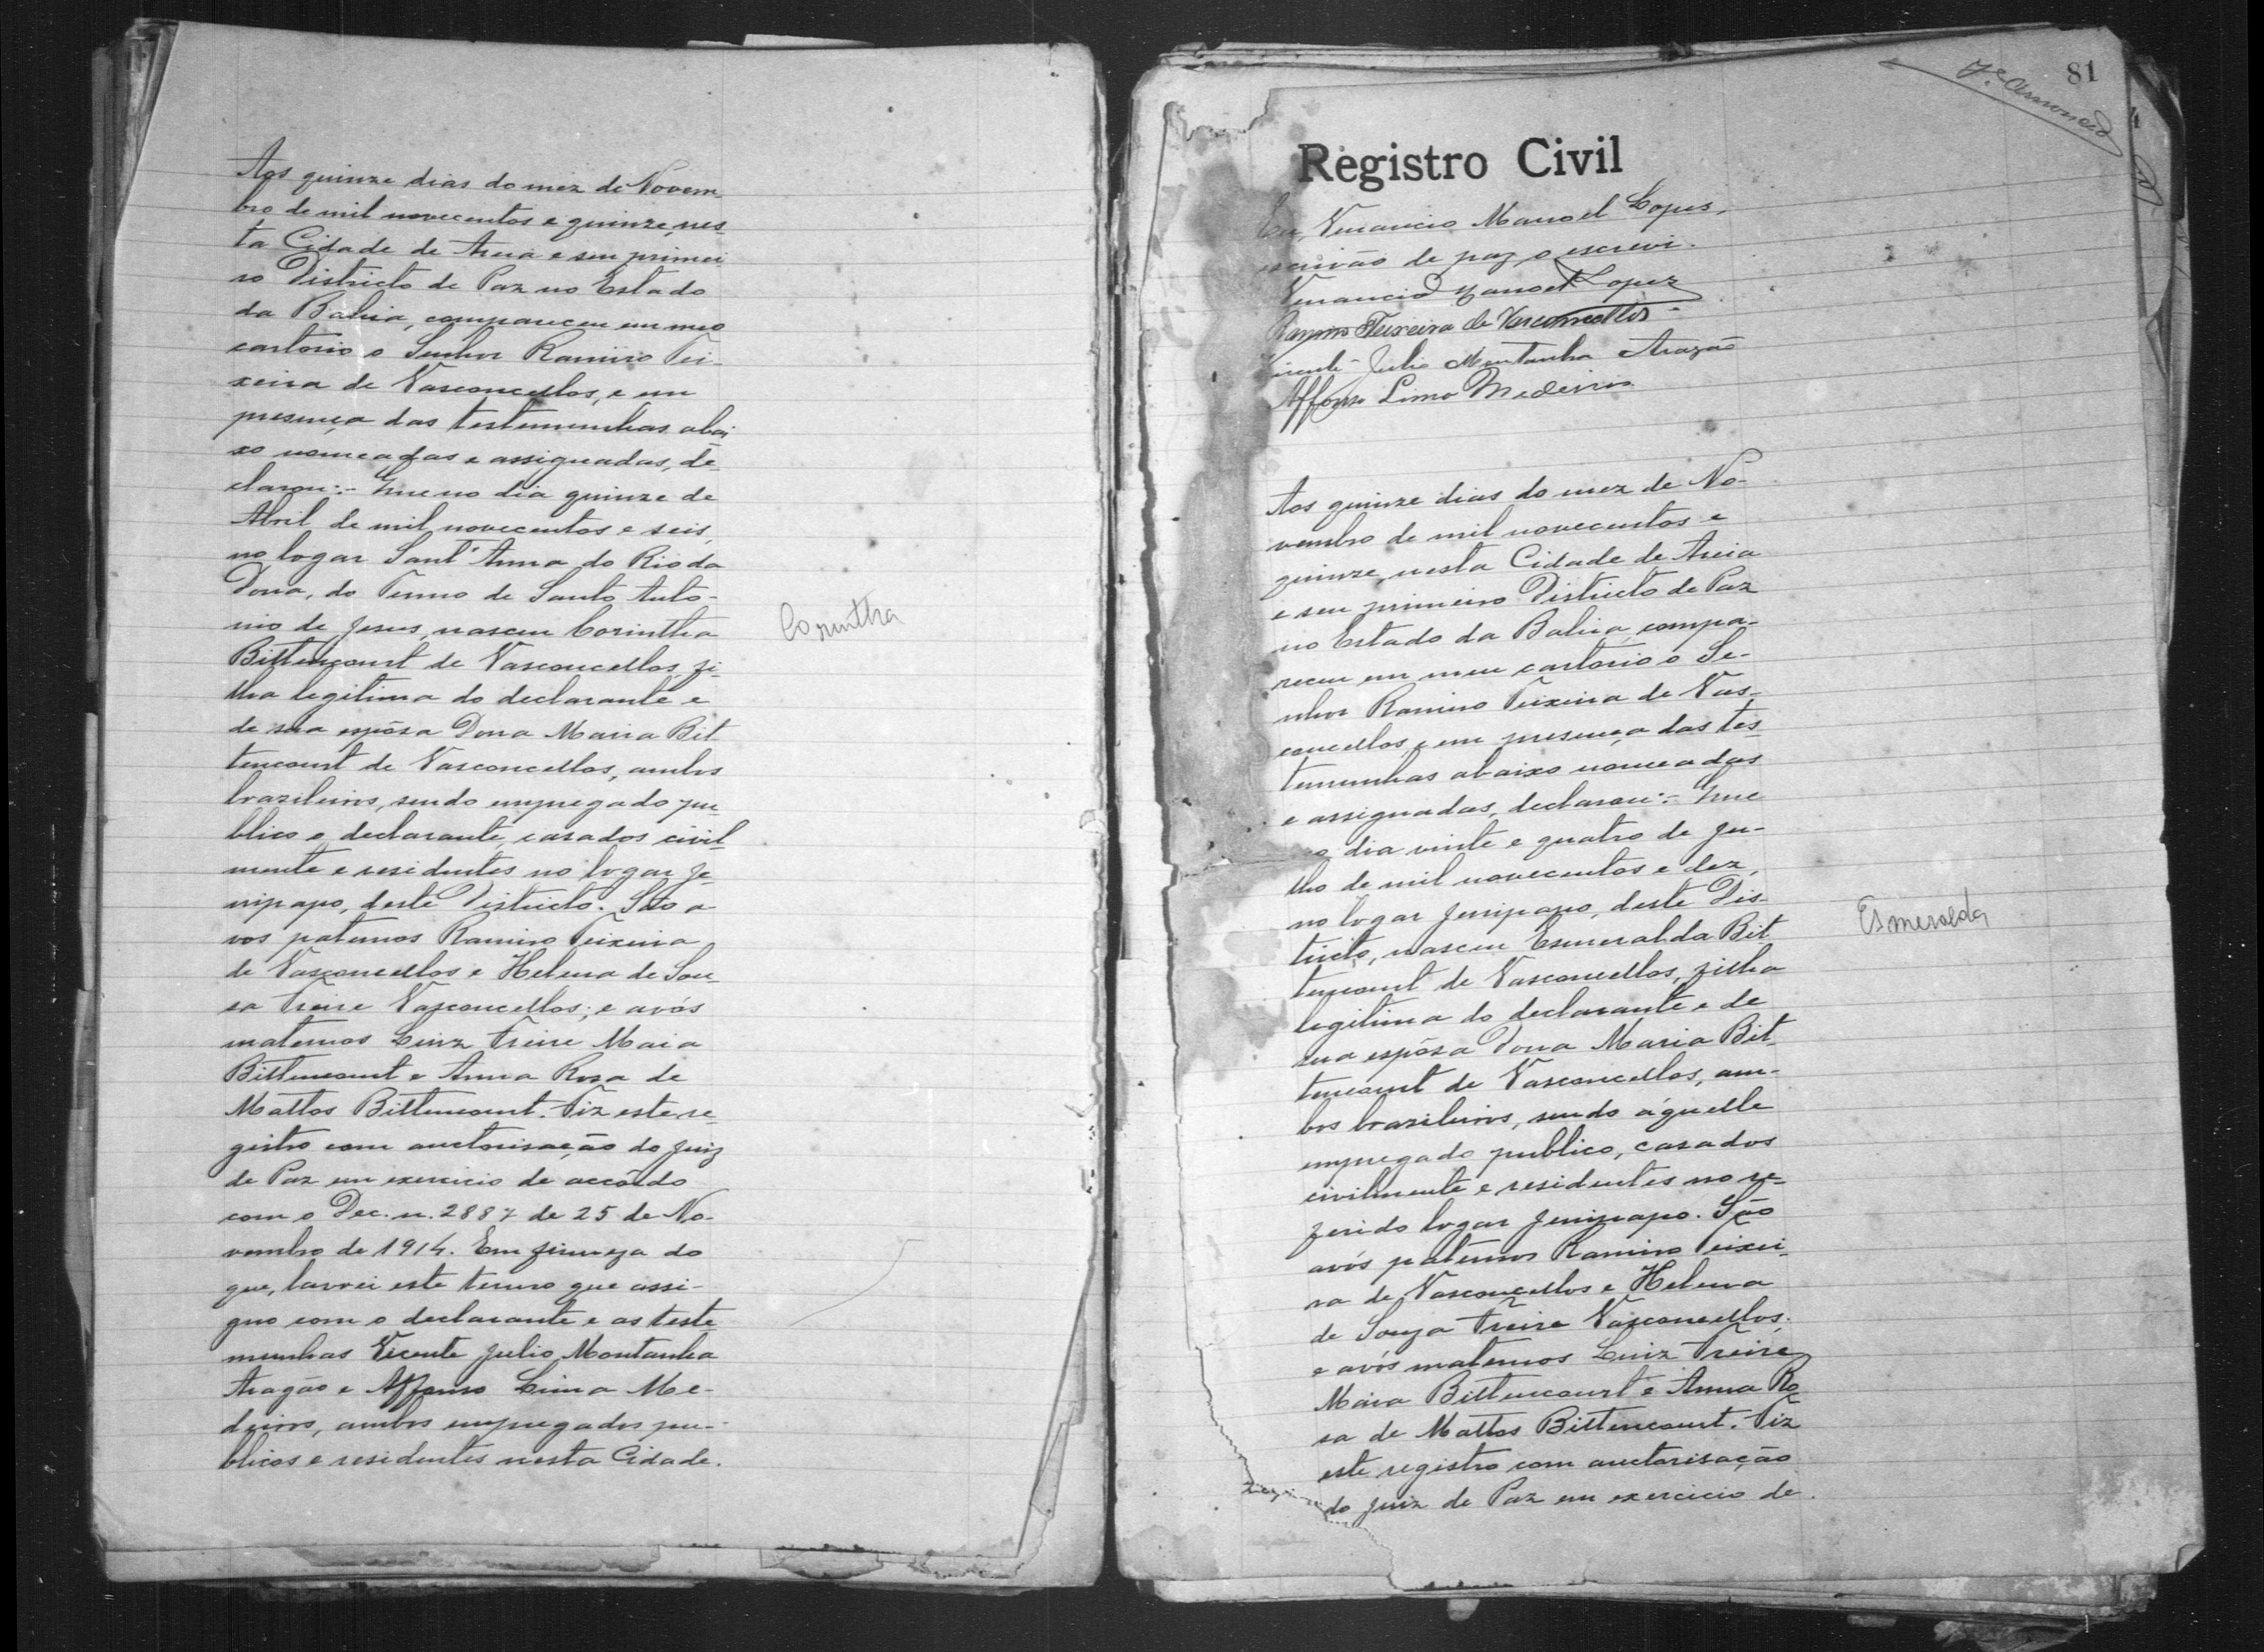 Aos quinze dias do mez de Novem-
bro de mil novecentos e quinze, nes-
ta Cidade de Areia e seu primei
ro Districto de Paz no Estado
da Bahia, compareceu em meu
cartorio o Senhor Ramiro Tei-
xeira de Vasconcellos, e em
presença das testemunhas abai
xo nomeadas e assignadas, de-
clarou:- Que no dia quinze de
Abril de mil novecentos e seis,
no logar Sant'Anna do Rio da
Dona, do Termo de Santo Anto-
nio de Jesus, nasceu Corintha
Bittencourt de Vasconcellos, fi-
lha legitima do declarante e
de sua espôsa Dona Maria Bit
tencourt de Vasconcellos, ambos
brazileiros, sendo empregado pu-
blico o declarante, casados civil-
mente e residentes no logar Je-
nipapo, deste Districto. São a-
vos paternos Ramiro Teixeira
de Vasconcellos e Helena de Sou-
sa Freire Vasconcellos; e avós
maternos Luiz Freire Maia
Bittencourt e Anna Rosa de
Mattos Bittencourt. Fiz este re-
gistro com auctorisação do Juiz
de Paz em exercicio de accôrdo
com o Dec. n. 2887 de 25 de No-
vembro de 1914. Em firmeza do
que, lavrei este termo que assi-
gno com o declarante e as teste
munhas Vicente Julio Montanha
Aragão e Affonso Lima Me-
deiros, ambos empregados pu-
blicos e residentes nesta Cidade.
Corintha
81
Registro Civil
Eu, Venancio Manoel Lopes,
escrivão de paz o escrevi.
Venancio Manoel Lopes
Ramiro Teixeira de Vasconcellos
Vicente Julio Montanha Aragão
Affonso Lima Medeiros
Aos quinze dias do mez de No-
vembro de mil novecentos e
quinze, nesta Cidade de Areia
e seu primeiro Districto de Paz
no Estado da Bahia, compa-
receu em meu cartorio o Se-
nhor Ramiro Teixeira de Vas-
concellos, e em presença das tes-
temunhas abaixo nomeadas
e assignadas, declarou:- Que
no dia vinte e quatro de Ju-
lho de mil novecentos e dez,
no logar Jenipapo, deste Dis-
tricto, nasceu Esmeralda Bit
tencourt de Vasconcellos, filha
legitima do declarante e de
sua espôsa Dona Maria Bit-
tencourt de Vasconcellos, am-
bos brazileiros, sendo áquelle
empregado publico, casados
civilmente e residentes no re-
ferido logar Jenipapo. São
avós paternos Ramiro Teixei-
ra de Vasconcellos e Helena
de Souza Freire Vasconcellos;
e avós maternos Luiz Freire
Maia Bittencourt e Anna Ro-
sa de Mattos Bittencourt. Fiz
este registro com auctorisação
do Juiz de Paz em exercicio de
Esmeralda